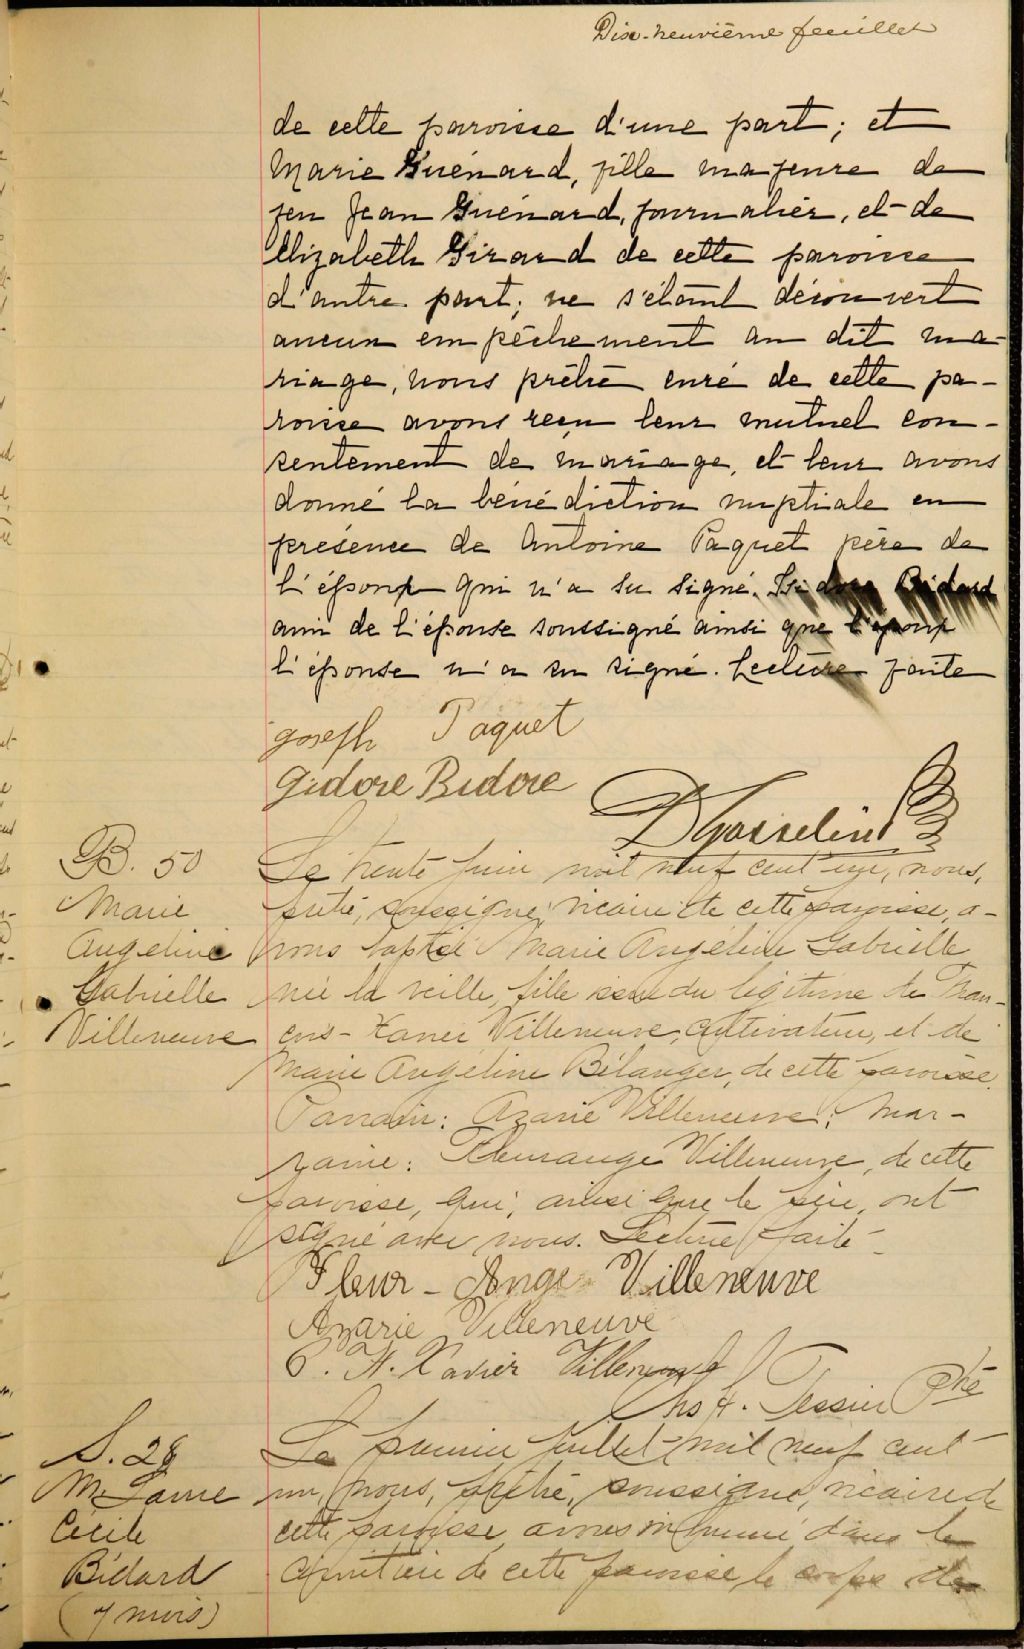 Dix-neuvième feuillet
de cette paroisse d'une part; et
Marie Guénard, fille majeure de
feu Jean Guénard, journalier, et de
Elizabeth Girard de cette paroisse
d'autre part; ne s'étant découvert
aucun empêchement au dit ma-
riage, nous prêtre curé de cette pa-
roisse avons reçu leur mutuel con-
sentement de mariage, et leur avons
donné la bénédiction nuptiale en
présence de Antoine Paquet père de
l'époux qui n'a su signé. Isidore Bidard
ami de l'épouse soussigné ainsi que l'époux
l'épouse n'a su signé. Lecture faite
Joseph Paquet
Gidore Bidore
D Gosselin
B. 50
Marie
Angeline
Gabrielle
Villeneuve
Le trente juin mil neuf cent un, nous,
prêtre, soussigné, vicaire de cette paroisse, a-
vons baptisé Marie Angéline Gabrielle
née la veille, fille issue du légitime de Fran-
çois-Xavier Villeneuve, cultivateur, et de
Marie Angéline Bélanger, de cette paroisse.
Parrain: Azarie Villeneuve; mar-
raine: Fleurange Villeneuve, de cette
paroisse, qui, ainsi que le père, ont
signé avec nous. Lecture faite
Fleur-Ange Villeneuve
Azarie Villeneuve
Xavier Villeneuve
Chs H. Tessier Ptre
S. 28
M. Laure
Cécile
Bédard
(7 mois)
Le premier juillet mil neuf cent
un, nous, prêtre, soussigné, vicaire de
cette paroisse, avons inhumé dans le
cimetière de cette paroisse le corps de